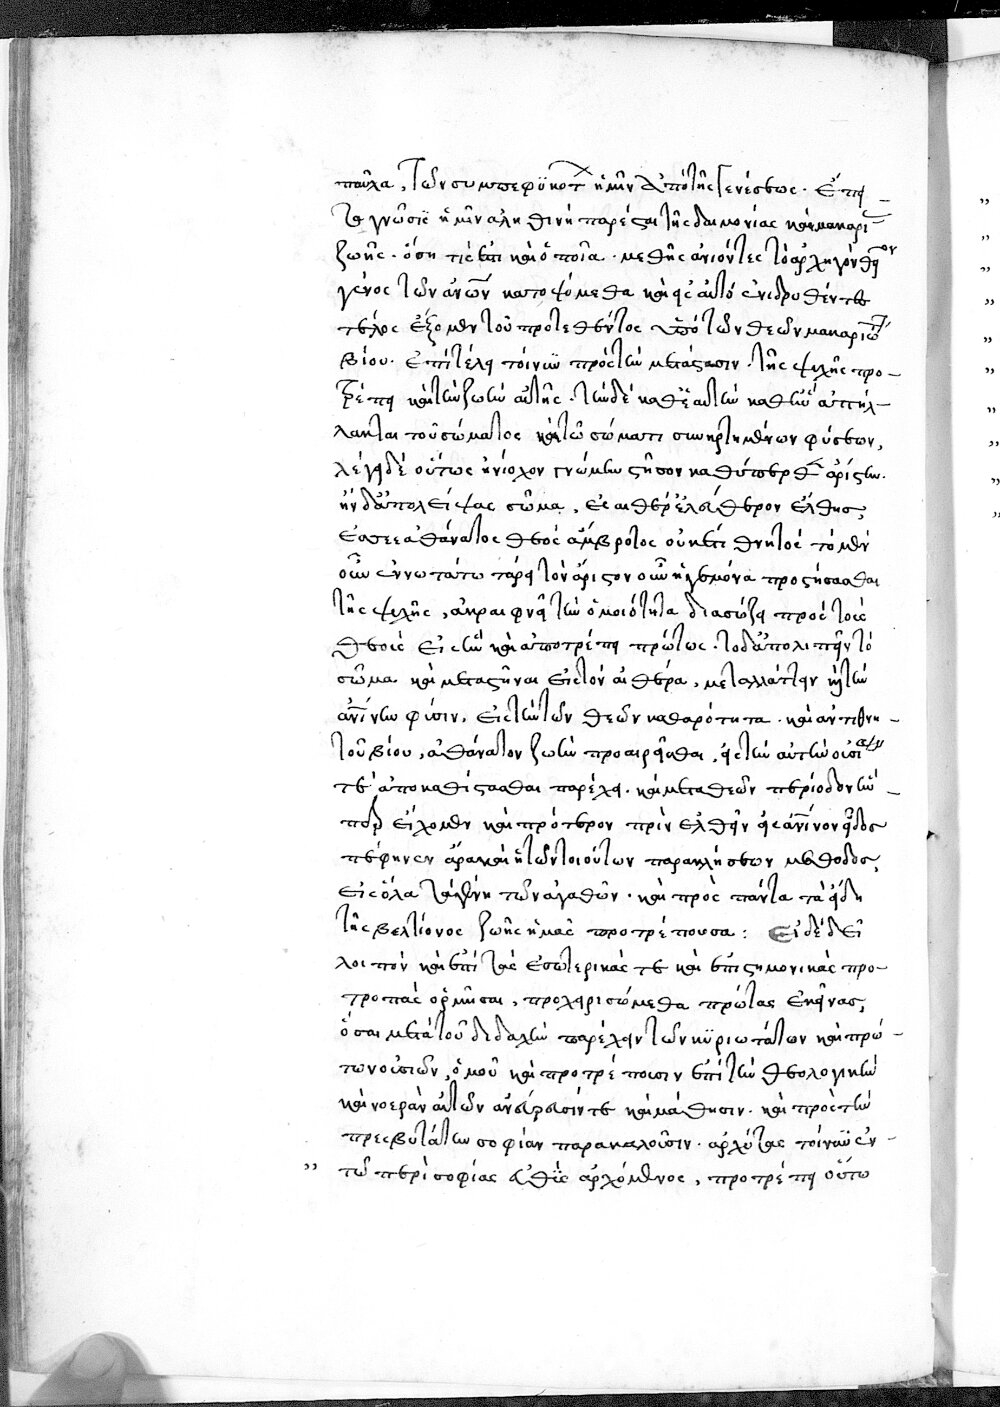 παῦλα, τῶν συμπεφυκότ ἡμῖν ἀπὸ τῆς γενέσεως. ἐπι
τε γνῶσις ἡμῖν ἀληθινὴ παρέσται τῆς δαιμονίας καὶ μακαρι
ζωῆς. ὅση τίς ἐστι καὶ ὁποῖα. μεθ' ἧς ἀνιόντες τὸ ἀρχηγὸν θεῖον
γένος τῶν ἀνῶν κατοψόμεθα καὶ εἰς αὐτὸ ἐνιδρυθέντες
τέλος ἕξομεν τοῦ προτεθέντος ὑπὸ τῶν θεῶν μακαριωτ
βίου. ἐπὶ τέλει τοίνυν πρὸς τὴν μετάστασιν. τῆς ψυχῆς προ-
τρέπει καὶ τὴν ζωὴν αὐτῆς. τὴν δὲ καθ' ἑαυτὴν καθ' ἣν ἀπήλ-
λακται τοῦ σώματος καὶ τῶ σώματι συνηρτημένων φύσεων,
λέγει δὲ οὕτως ἡνίοχον γνώμην στῆσον καθύπερθ ἀρίστην.
ἢν δ' ἀπολείψας σῶμα, ἐς αἰθέρ' ἐλεύθερον ἔλθης,
ἔσσεαι ἀθάνατος θεὸς ἄμβροτος οὐκ ἔτι θνητός τὸ μὲν
οὖν ἐννωτάτω τάξει τὸν ἄριστον οὖν ἡγεμόνα προστήσασθαι
τῆς ψυχῆς, ἀκραιφνῆ τὴν ὁμοιότητα διασώζει πρὸς τοὺς
θεοὺς εἰς ἣν καὶ ἀποτρέπει πρώτως. τὸ δ' ἀπολιπεῖν τὸ
σῶμα καὶ μεταστῆναι εἰς τὸν αἰθέρα, μεταλλάττειν καὶ τὴν
ἀνίνην φύσιν, εἰς τὴν τῶν θεῶν καθαρότητα. καὶ ἀντὶ θνη-
τοῦ βίου, ἀθάνατον ζωὴν προαιρεῖσθαι, εἰς τὴν αὐτὴν οὐσίαν
τε ἀποκαθίστασθαι παρέχει. καὶ μετὰ θεῶν περίοδον ἣν-
περ εἴχομεν καὶ πρότερον πρὶν ἐλθεῖν εἰς ἀνίνον εἶδος
πέφηνεν ἄρα καὶ ἡ τῶν τοιούτων παρακλήσεων μέθοδος,
εἰς ὅλα τὰ γένη τῶν ἀγαθῶν. καὶ πρὸς πάντα τὰ εἴδη
τῆς βελτίονος ζωῆς ἡμᾶς προτρέπουσα: Εἰ δὲ δεῖ
λοιπὸν καὶ ἐπὶ τὰς ἐσωτερικάς τε καὶ ἐπιστημονικὰς προ-
τροπὰς ὁρμῆσαι, προχειρισώμεθα πρώτας ἐκείνας,
ὅσαι μετὰ τοῦ διδαχὴν παρέχειν τῶν κυριωτάτων καὶ πρώ-
των οὐσιῶν, ὁμοῦ καὶ προτρέπουσιν ἐπὶ τὴν θεολογικὴν
καὶ νοερὰν αὐτῶν ἀνεύρεσίν τε καὶ μάθησιν. καὶ πρὸς τὴν
πρεσβυτάτην σοφίαν παρακαλοῦσιν. ἀρχύτας τοίνυν ἐν-
,, τῶ περὶ σοφίας εὐθὺς ἀρχόμενος, προτρέπει οὕτω